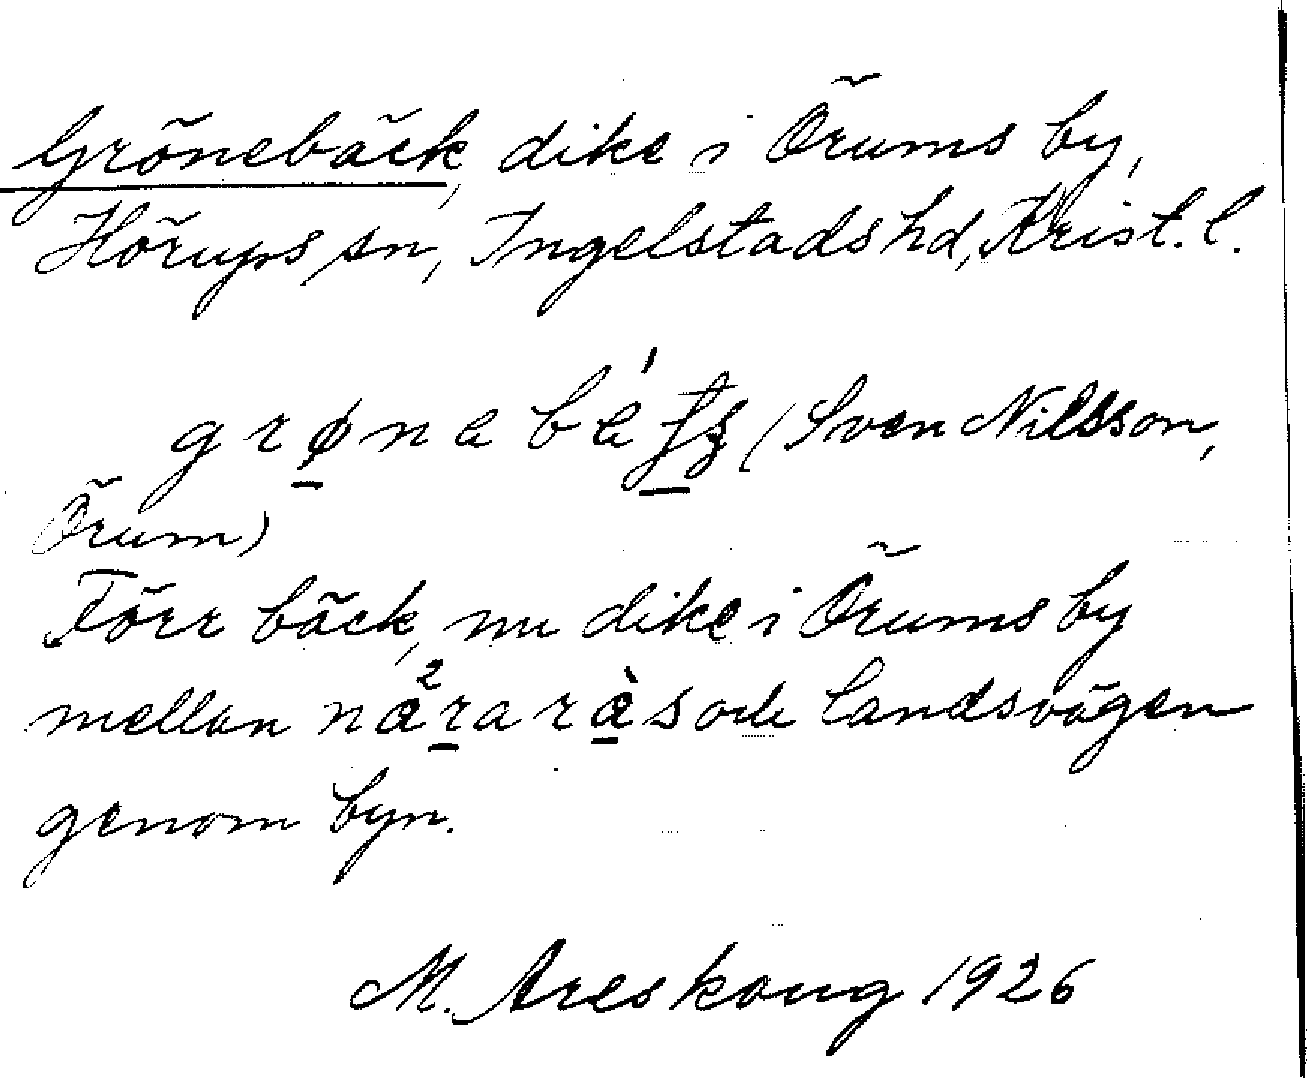 Grönebäck, dike i Örums by,
Hörups sn, Ingelstads hd, Krist. l.
(Sven Nilsson,
Örum)
Förr bäck, nu dike i Örums by
mellan och landsvägen
genom byn.
M. Areskoug 1926